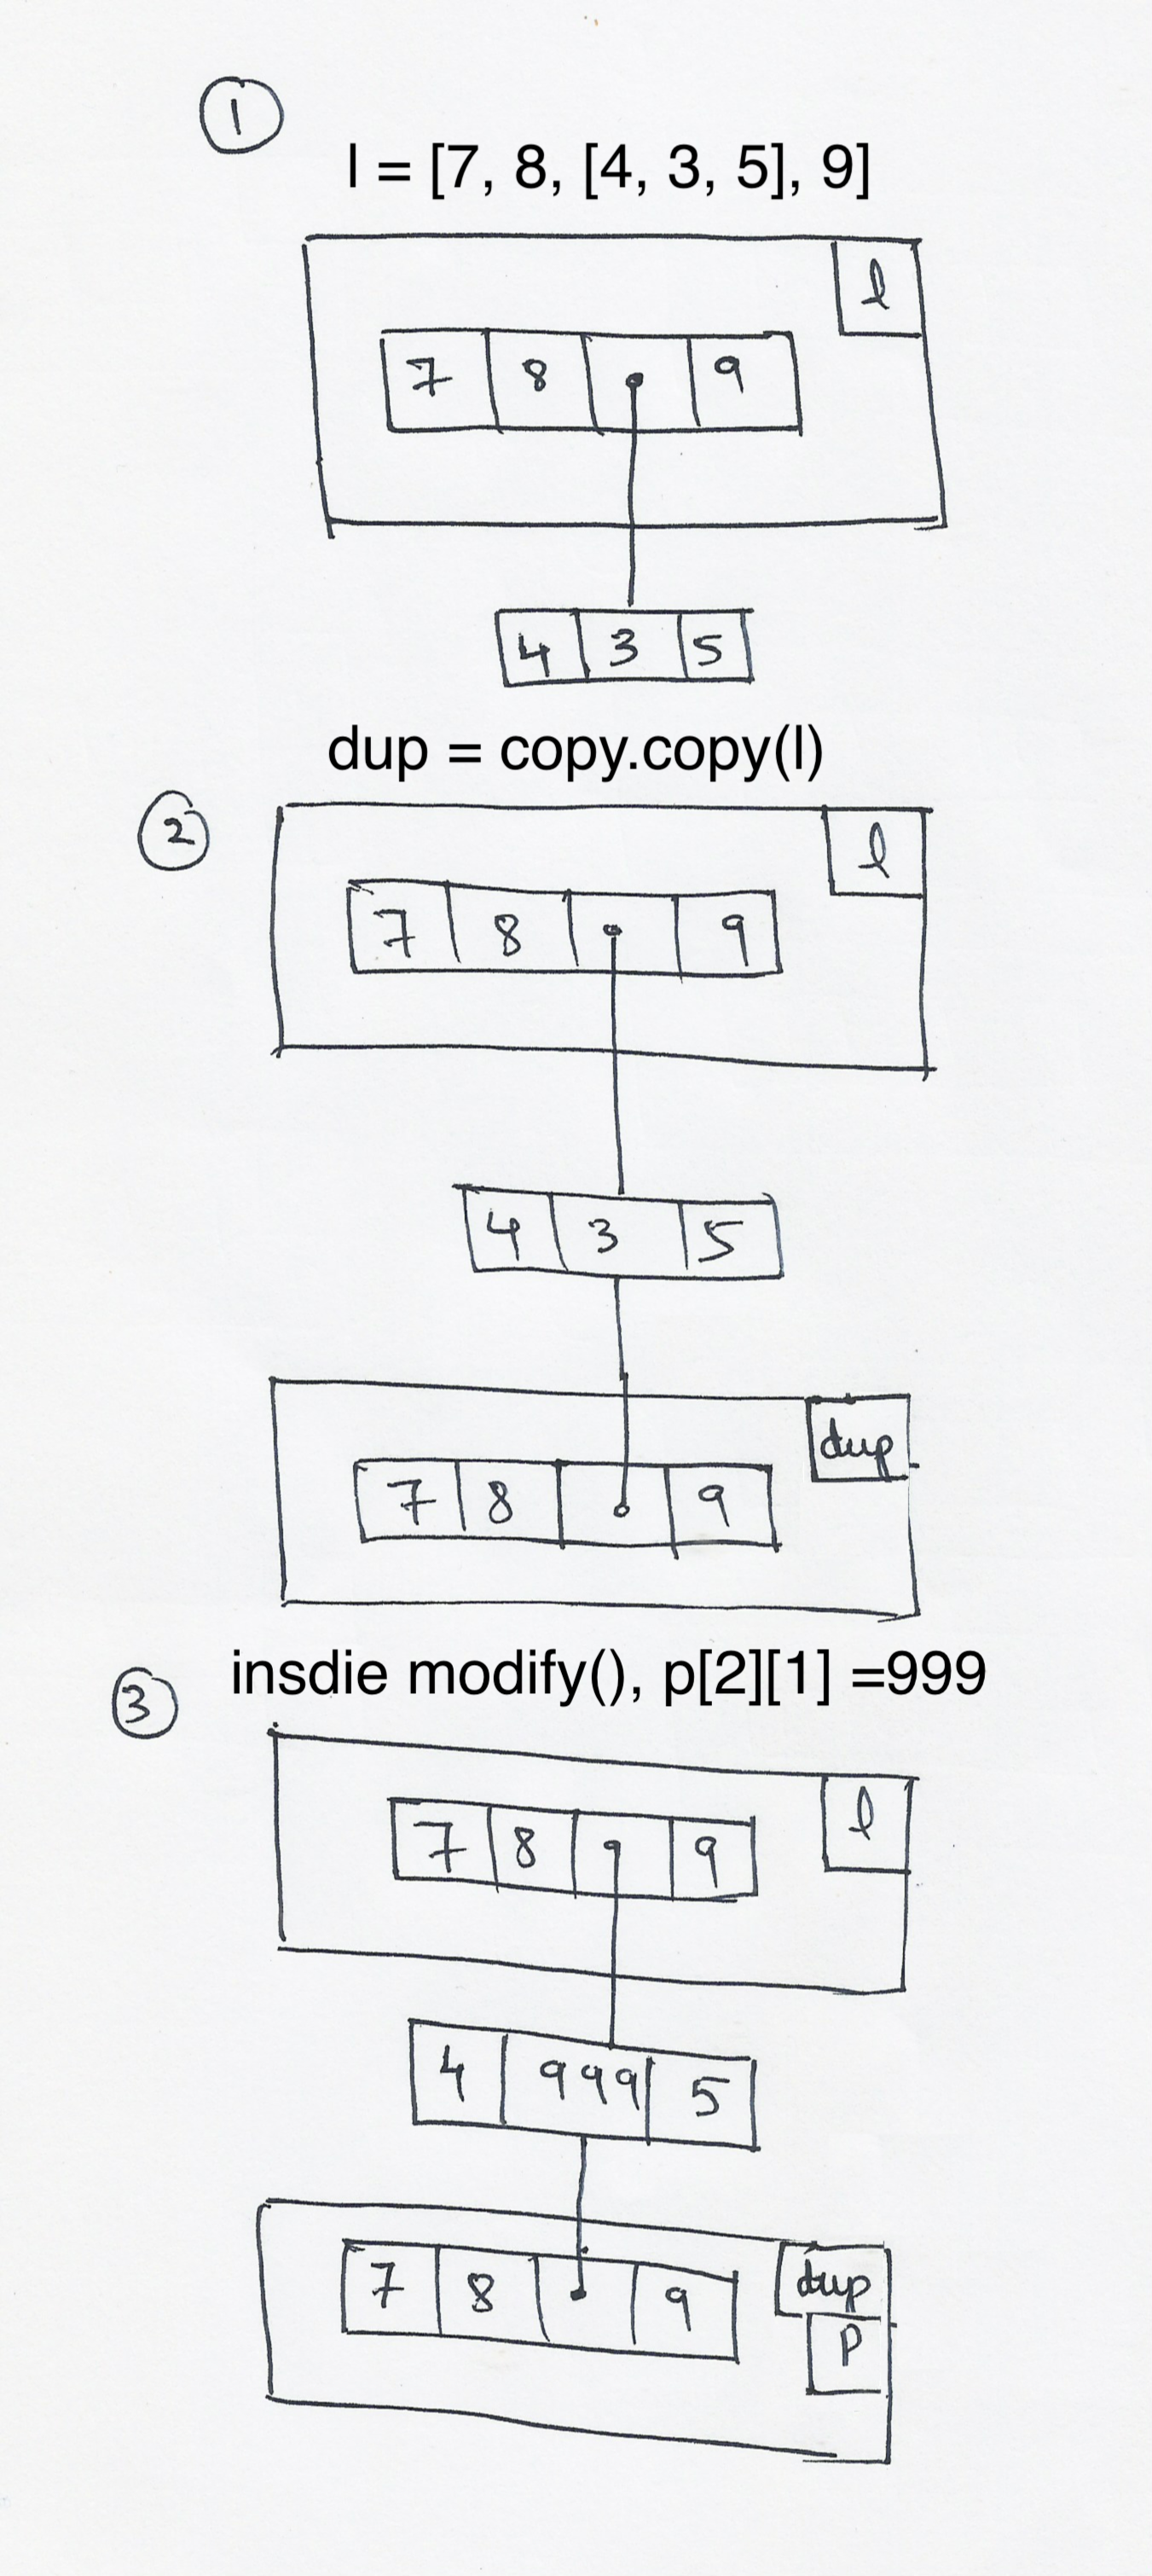 1
l = [7, 8, [4, 3, 5], 9]
l
7 8 9
4 3 5
dup = copy.copy(l)
2
l
7 8 9
4 3 5
dup
7 8 9
insdie modify(), p[2][1] =999
3
l
7 8 9
4 999 5
dup
7 8 9
p